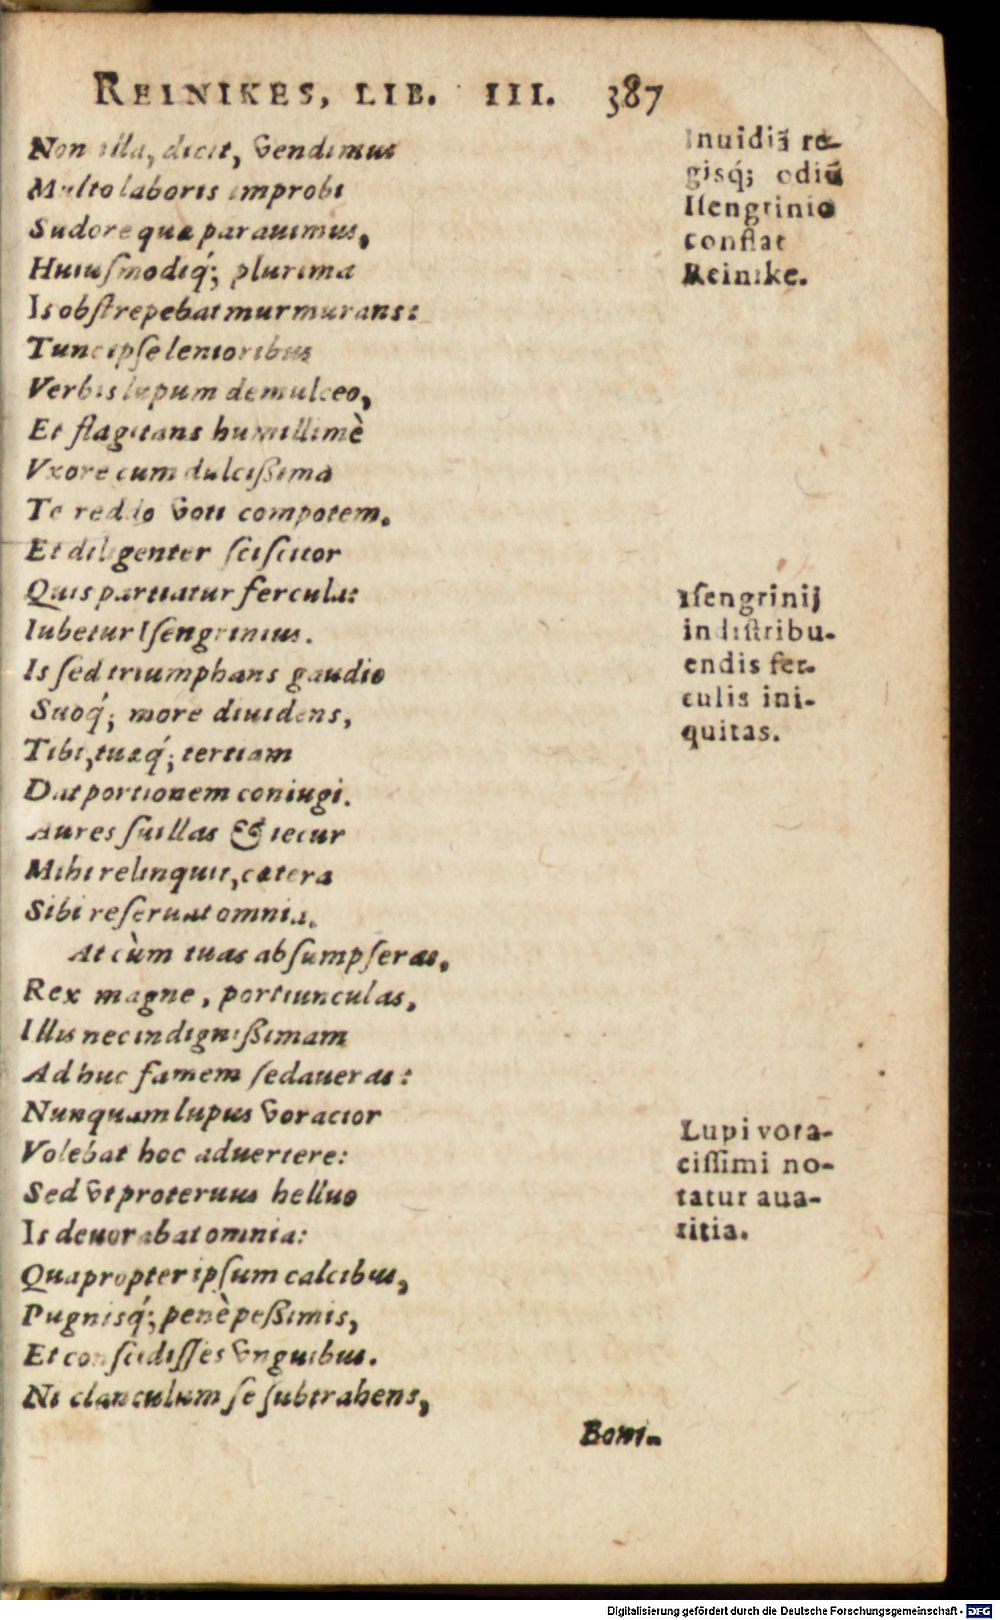 REINIKES, LIB. III. 387
Non illa, dicit, vendimus
Multo laboris improbi
Sudore quæ parauimus,
Huiuſmodiq́; plurima
Is obſtrepebat murmurans:
Tunc ipſe lenioribus
Verbis lupum demulceo,
Et flagitans humillimè
Vxore cum dulcißima
Te reddo voti compotem.
Et diligenter ſciſcitor
Quis partiatur fercula:
Iubetur Iſengrinius.
Is ſed triumphans gaudio
Suoq́; more diuidens,
Tibi, tuæq́; tertiam
Dat portionem coniugi.
Aures ſuillas & iecur
Mihi relinquit, cætera
Sibi reſeruat omnia.
At cùm tuas abſumpſeras,
Rex magne, portiunculas,
Illis nec indignißimam
Ad huc famem ſedaueras:
Nunquam lupus voracior
Volebat hoc aduertere:
Sed vt proteruus helluo
Is deuorabat omnia:
Quapropter ipſum calcibus,
Pugnisq́; penè peßimis,
Et conſcidiſſes vnguibus.
Ni clanculum ſe ſubtrahens,
Boni-
Inuidiā re-
gisq́; odiū
Iſengrinio
conflat
Reinike.
Iſengrinij
in diſtribu-
endis fer-
culis ini-
quitas.
Lupi vora-
ciſſimi no-
tatur aua-
ritia.
Digitalisierung gefördert durch die Deutsche Forschungsgemeinschaft - DFG